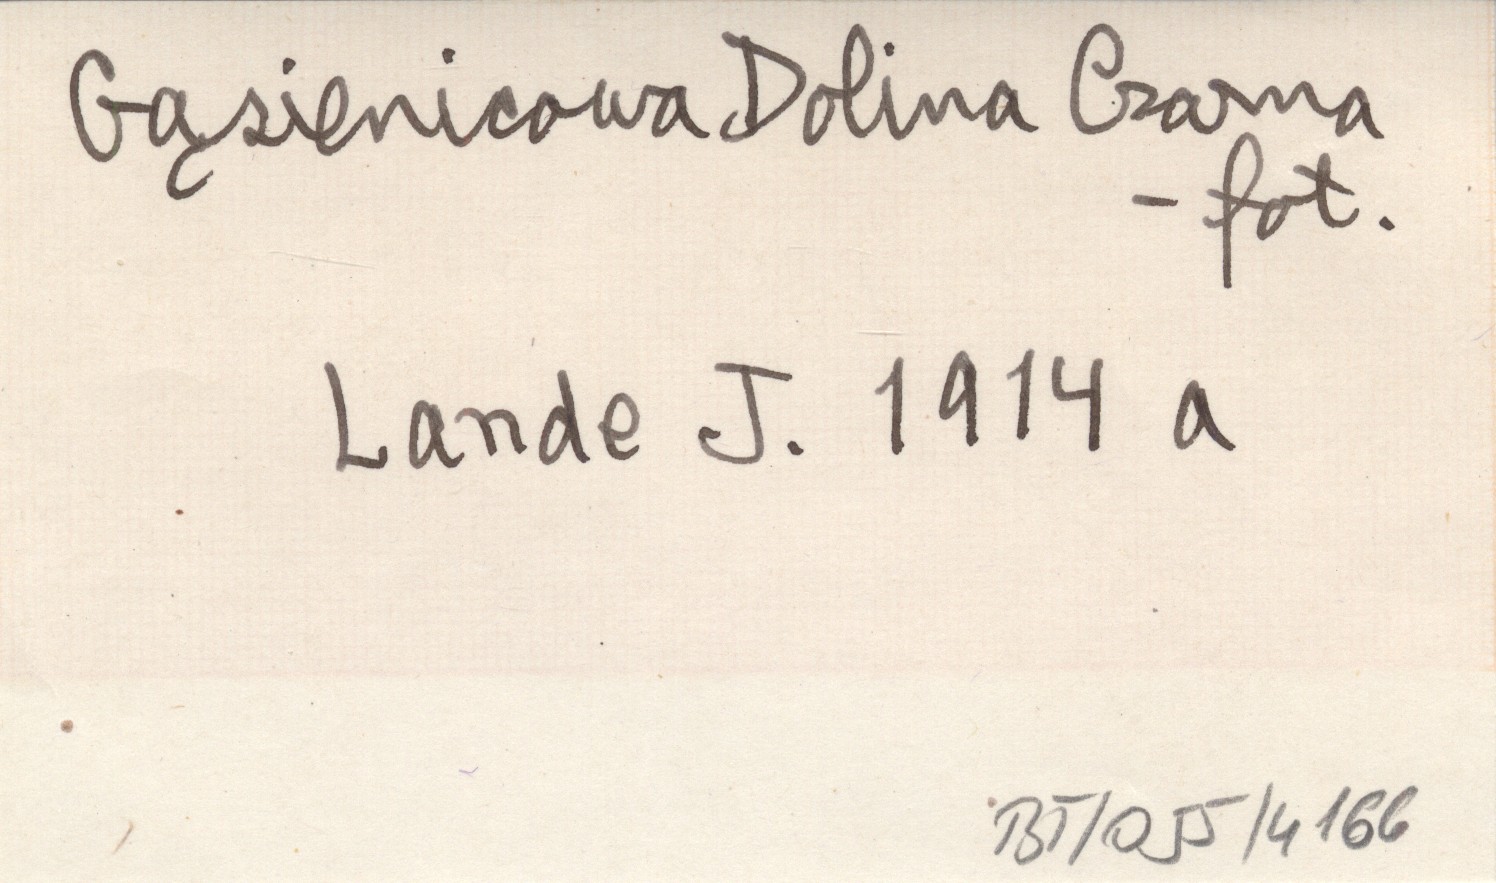 Gąsienicowa Dolina Czarna
- fot.
Lande J. 1914 a
BT/OJJ/4166